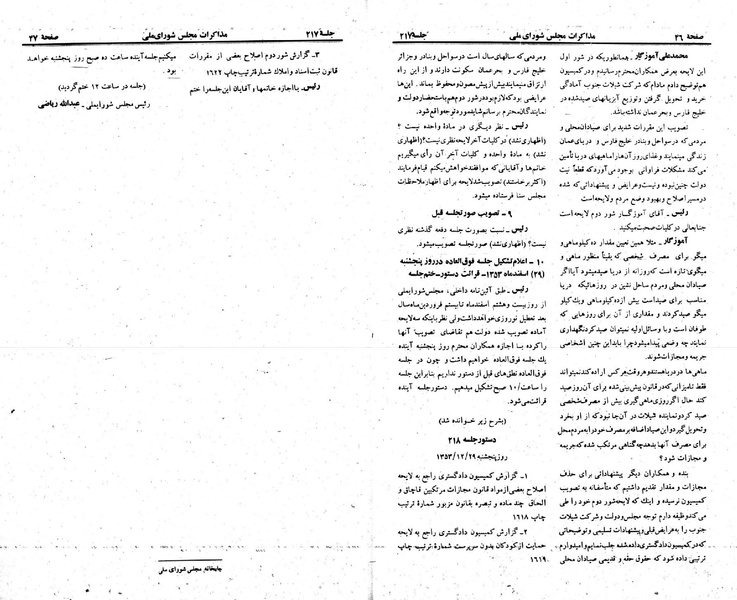 صفحه ۳۶
مذاکرات مجلس شورای ملی
جلسه ۲۱۷
محمدعلی آموزگار ـ همانطوریکه در شور اول
این لایحه بعرض همکاران محترم رسانیدم و در کمیسیون
هم توضیح دادم مادام که شرکت شیلات جنوب آمادگی
خرید و تحویل گرفتن و توزیع آبزیهای صید شده در
خلیج فارس و بحر عمان نداشته باشد.
تصویب این مقررات شدید برای صیادان محلی و
مردمی که در سواحل و بنادر خلیج فارس و دریای عمان
زندگی مینمایند و غذای روز آن‌ها از ماهیهای دریا تأمین
می‌کند مشکلات فراوانی بوجود می‌آورد که قطعاً نیت
دولت چنین نبوده و نیست و عرایض و پیشنهاداتی که شده
در مسیر اصلاح و بهبود وضع مردم و لایحه است
رئیس ـ آقای آموزگار شور دوم لایحه است
جنابعالی در کلیات صحبت میکنید.
آموزگار ـ مثلا همین تعیین مقدار ده کیلو ماهی و
میگو برای مصرف شخصی که یقیناً منظور ماهی و
میگوی تازه است که روزانه از دریا صید میشود آیا اگر
صیادان محلی و مردم ساحل نشین در روزهائیکه دریا
مناسب برای صید است بیش از ده کیلو ماهی و یک کیلو
میگو صید کردند و مقداری از آن برای روزهایی که
طوفان است و با وسائل اولیه نمیتوان صید کرد نگهداری
نمایند چه وضعی پیدا میشود چرا باید این چنین اشخاصی
جریمه و مجازات شوند.
ماهی‌ها در دریا هستند و هر وقت هر کس اراده کند نمیتواند
فقط تا میزانی که در قانون پیش بینی شده برای آن روز صید
کند حال اگر روزی ماهی گیری بیش از مصرف شخصی
صید کرد و نماینده شیلات در آن جا نبود که از او بخرد
و تحویل گیرد و این صید اضافه بر مصرف خود را به مردم محل
برای مصرف آنها بدهد چه گناهی مرتکب شده که جریمه
و مجازات شود؟
بنده و همکاران دیگر پیشنهاداتی برای حذف
مجازات و مقدار تقدیم داشتیم که متأسفانه به تصویب
کمیسیون نرسیده و اینک که لایحه شور دوم خود را طی
می‌کند وظیفه دارم توجه مجلس و دولت و شرکت شیلات
جنوب را به عرایض قبلی و پیشنهادات تسلیمی و توضیحاتی
که در کمیسیون دادگستری داده شده جلب نمایم و امیدوارم
ترتیبی داده شود که حقوق حقه و قدیمی صیادان محلی
و مردمی که سالهای سال است در سواحل و بنادر و جزائر
خلیج فارس و بحر عمان سکونت دارند و از این راه
ارتزاق مینمایند بیش از پیش مصون و محفوظ بماند. این‌ها
عرایضی بود که لازم بود در شور دوم هم باستحضار دولت و
نمایندگان محترم برسانم شاید مورد توجه واقع شود.
رئیس ـ نظر دیگری در مادهٔ واحده نیست ؟
(اظهاری نشد) در کلیات آخر لایحه نظری نیست؟ (اظهاری
نشد) به مادهٔ واحده و کلیات آخر آن رأی میگیریم
خانم‌ها و آقایانی که موافقند خواهش میکنم قیام فرمایند
(اکثر برخاستند) تصویب شد لایحه برای اظهار ملاحظات
مجلس سنا فرستاده میشود.
۹ ـ تصویب صورتجلسه قبل
رئیس ـ نسبت بصورت جلسه دفعه گذشته نظری
نیست؟ (اظهاری نشد) صورتجلسه تصویب میشود.
۱۰ ـ اعلام تشکیل جلسه فوق العاده در روز پنجشنبه
(۲۹) اسفندماه ۱۳۵۳ـ قرائت دستور ـ ختم جلسه
رئیس ـ طبق آئین‌نامه داخلی، مجلس شورایملی
از روز بیست و هشتم اسفندماه تا بیستم فروردین ماه سال
بعد تعطیل نوروزی خواهد داشت ولی نظر باینکه سه لایحه
آماده تصویب شده دولت هم تقاضای تصویب آنها
را کرده با اجازه همکاران محترم روز پنجشنبه آینده
یک جلسه فوق‌العاده خواهیم داشت و چون در جلسه
فوق‌العاده نطق‌های قبل از دستور نداریم بنابراین جلسه
را ساعت / ۱۰ صبح تشکیل میدهیم. دستور جلسه آینده
قرائت می‌شود.
(بشرح زیر خوانده شد)
دستور جلسه ۲۱۸
روز پنجشنبه ۱۳۵۳/۱۲/۲۹
۱ ـ گزارش کمیسیون دادگستری راجع به لایحه
اصلاح بعضی از مواد قانون مجازات مرتکبین قاچاق و
الحاق چند ماده و تبصره بقانون مزبور شمارهٔ ترتیب
چاپ ۱۶۱۸
۲ ـ گزارش کمیسیون دادگستری راجع به لایحه
حمایت از کودکان بدون سرپرست شمارهٔ ترتیب چاپ
۱۶۱۹
جلسهٔ ۲۱۷
مذاکرات مجلس شورای ملی
صفحهٔ ۳۷
۳ـ گزارش شور دوم اصلاح بعضی از مقررات
قانون ثبت اسناد و املاک شمارهٔ ترتیب چاپ ۱۶۲۲
رئیس ـ با اجازه خانمها و آقایان این جلسه را ختم
میکنیم جلسه آینده ساعت ده صبح روز پنجشنبه خواهد
بود.
(جلسه در ساعت ۱۲ ختم گردید)
رئیس مجلس شورایملی ـ عبدالله ریاضی
چاپخانه مجلس شورای ملی